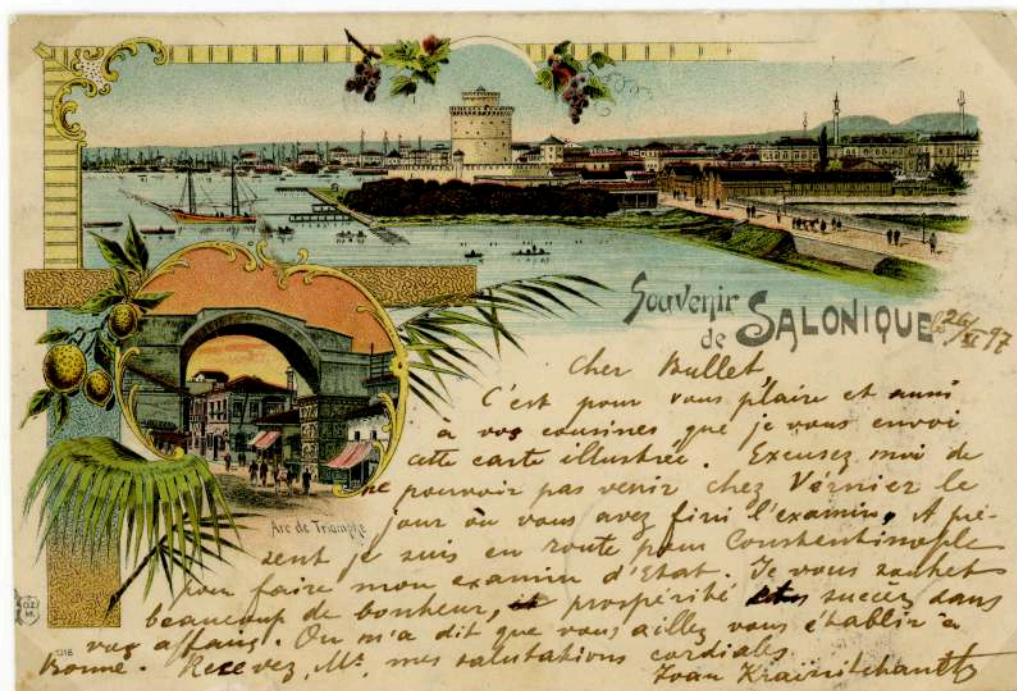 Souvenir
de SALONIQUE
26/XI 97
Cher Bullet
C'est pour vous plaire et aussi
à vos cousines que je vous envoi
cette carte illustrée. Excusez moi de
ne pouvoir pas venir chez Vérnier le
jour où vous avez fini l'examin, A pré-
sent je suis en route pour Constentinople
pour faire mon examin d'Etat. Je vous souhet
beaucoup de bonheur, prospérité succèz dans
vos affairs. On m'a dit que vous aillez vous établir à
Bonne. Recevez, Mr. mes salutations cordiales.
Ivan
Arc de Triomphe
1216